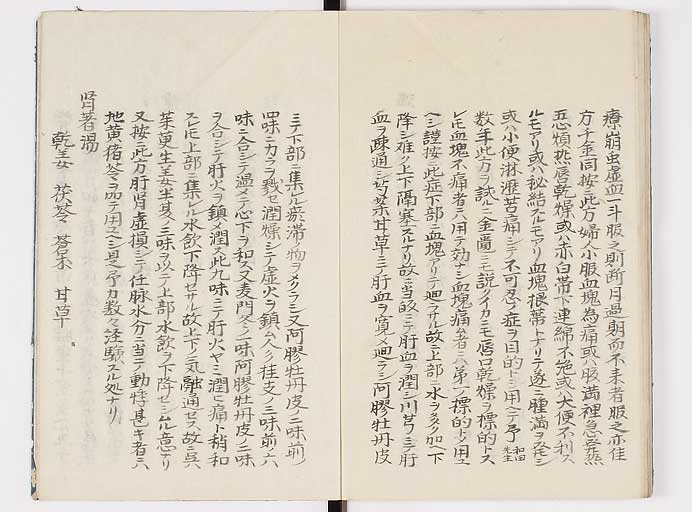 療崩虫虚血一斗服之則断月過期而不来者服之亦佳
方千金同按ニ此方婦人小服血塊為痛或ハ服満裡急発熱
五心煩热唇乾燥或ハ赤白帯下連綿不絶或ハ大便不利ス
ルモアリ或ハ秘結スルモアリ血塊根蔕トナリテ遂ニ腫満ヲ発シ
或ハ小便淋瀝苦痛シテ不可忍ノ症ヲ目的トシ用ヘシ予和田先生
数年此方ヲ試ニ金匱ニモ説クイカニモ唇口乾燥ヲ標的トス
レ𪜈血塊不痛者ニハ用テ効ナシ血塊痛ム者ニハ第一標的トシ用ユ
ヘシ謹按ニ此症下部ニ血塊アリテ廻ラサル故ニ上部ニ水ヲタクハヘ下
降シ難ク上下隔塞スルナリ故ニ当皈ニテ肝血ヲ潤シ川芎ニテ肝
血ヲ疎通シ芍薬甘草ニテ肝血ヲ寛メ廻ラシ阿膠牡丹皮
ニテ下部ニ集ル瘀滞ノ物ヲメクラシ又阿膠牡丹皮ノ二味前ノ
四味ニカラヲ戮セ潤燥シテ虚火ヲ鎮ム人参桂支ノ二味前ノ六
味ニ合シテ温メテ心下ヲ和ス又麦門冬ノ一味阿膠牡丹皮ノ二味
ヲ合シテ肝火ヲ鎮メ潤ス此九味ニテ肝火ヤミ潤ヒ痛ト稍和
スレ𪜈上部ニ集レル水飲下降セサル故上下ノ気融通セス故ニ呉
茱萸生姜半夏ノ三味ヲ以テ上部水飲ヲ下降セシムル意ナリ
又按ニ此方肝腎虚損シテ任脉水分ニ当テ動悸甚キ者ニハ
地黄猪苓ヲ加テ用ユヘシ是予カ数々注驗スル処ナリ
腎着湯
乾姜 茯苓 蒼朮 甘草